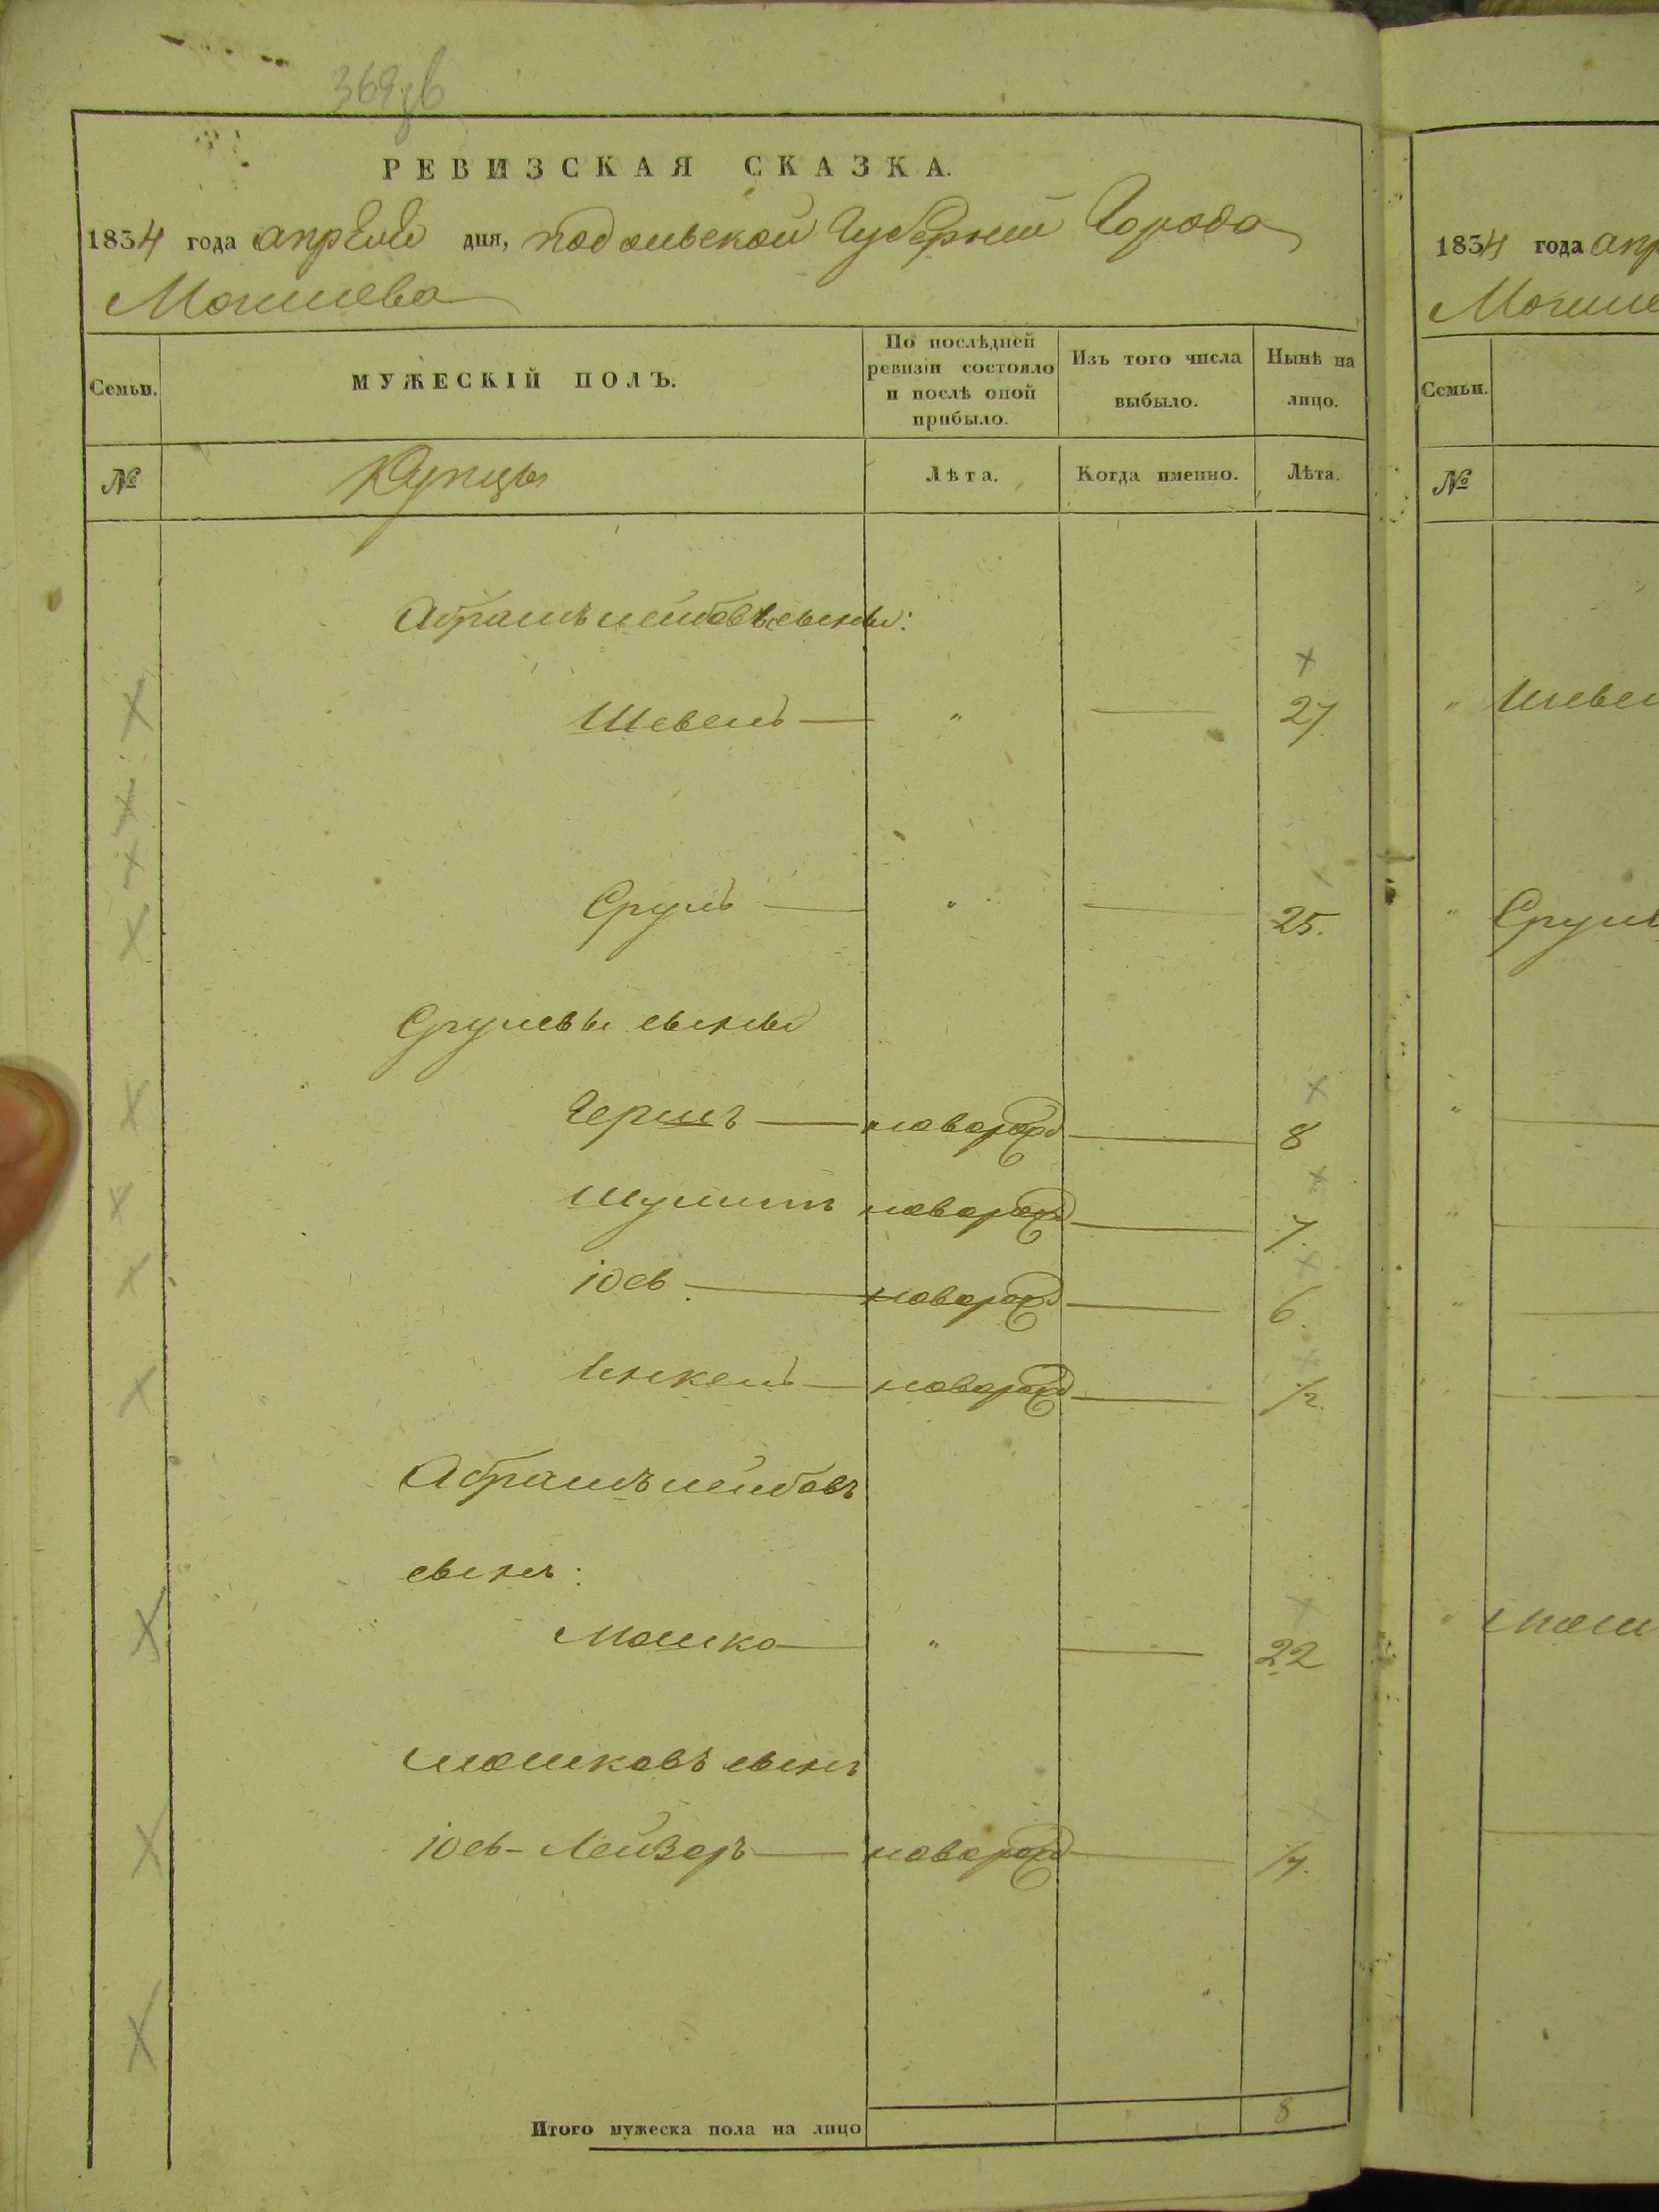 369зв
РЕВИЗСКАЯ СКАЗКА.
1834 года апреля дня, подольской Губернии Города
Могилева
Семьи.
МУЖЕСКІЙ ПОЛЪ.
По послѣдней ревизіи состояло и послѣ оной прибыло.
Изъ того числа выбыло.
Нынѣ на лицо.
№
Купцы
Лѣта.
Когда именно.
Лѣта.
Абрамъ Лейбовы сыны:
Шевель — " — 27
Сруль — " — 25.
Срулевы сыны
Гершъ — новорож — 8
Шулим новорож — 7.
іос — новорож — 6.
Инкель — новорож — 1/2.
Абрамъ Лейбовъ
сынъ:
Мошко — " — 22
Мошковъ сынъ
іос-Лейзоръ — новорож —
Итого мужеска пола на лицо 8
1834 года апр
Могиле
Семьи.
№
" Шевел
" Сруль
"
"
"
" Мош